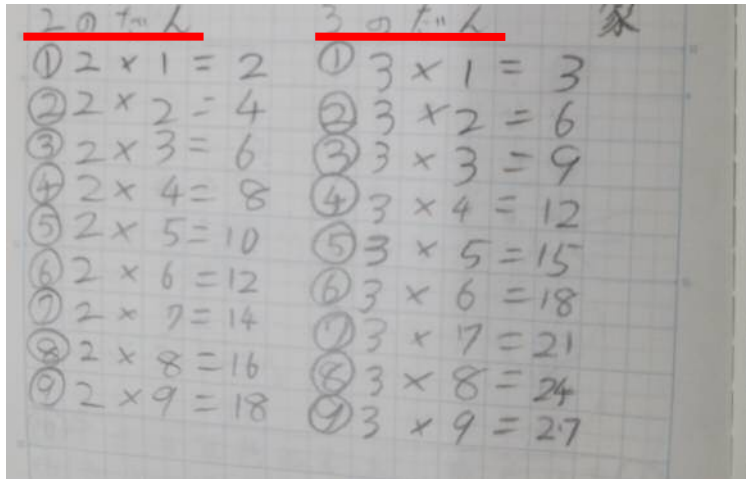 2のだん
①2×1=2
②2×2=4
③2×3=6
④2×4=8
⑤2×5=10
⑥2×6=12
⑦2×7=14
⑧2×8=16
⑨2×9=18
3のだん
①3×1=3
②3×2=6
③3×3=9
④3×4=12
⑤3×5=15
⑥3×6=18
⑦3×7=21
⑧3×8=24
⑨3×9=27
家